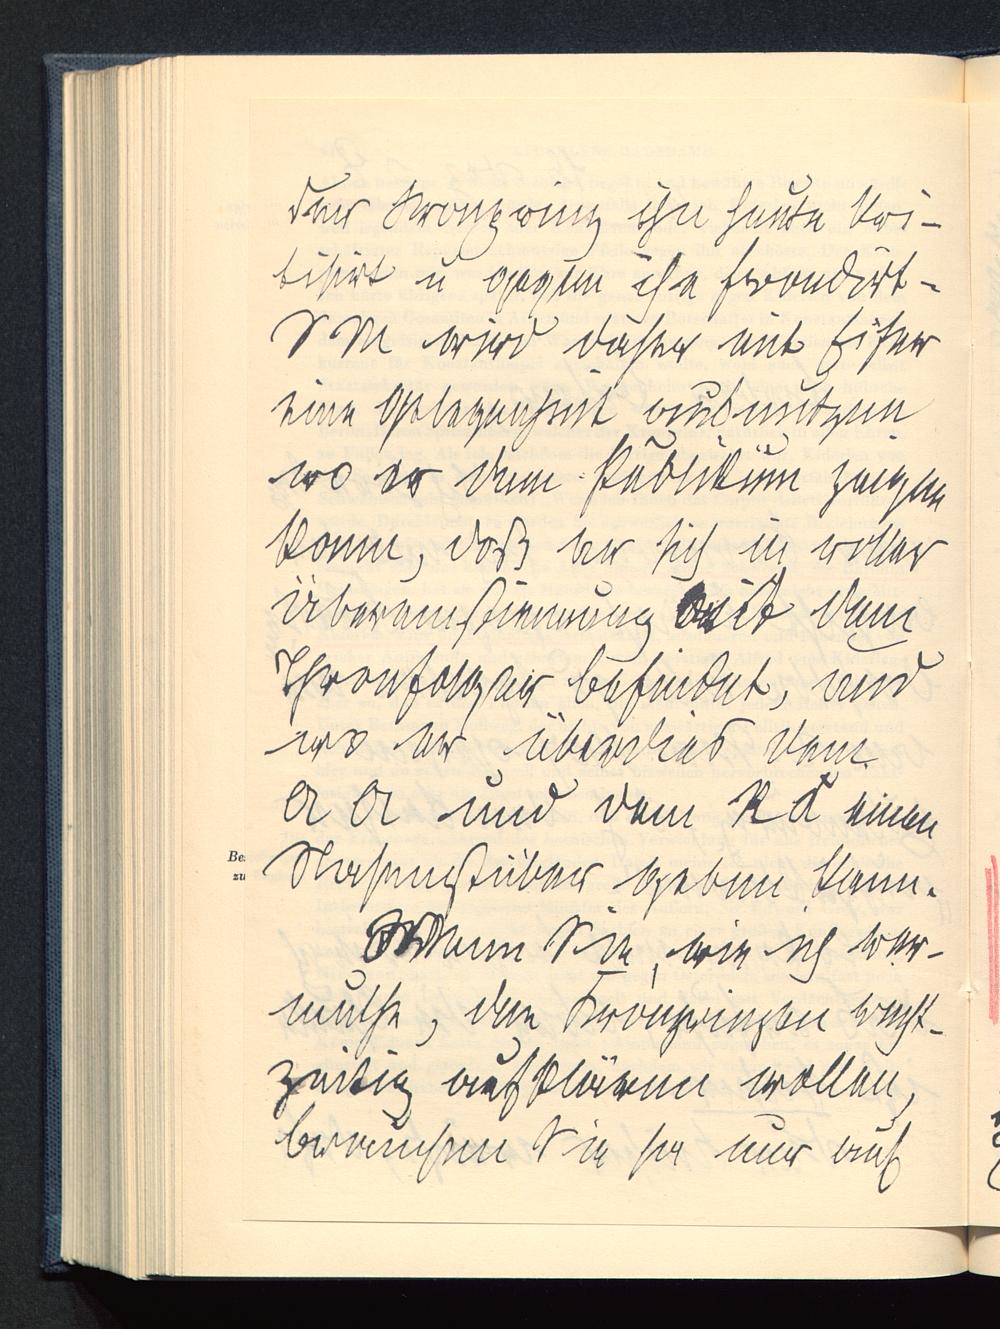 der Kronprinz ihn heute kri-
tisirt u gegen ihn frondirt -
S M wird daher mit Eifer
eine Gelegenheit ausnutzen
wo er dem Publikum zeigen
kann, daß er sich in voller
Übereinstimmung mit dem
Thronfolger befindet, und
wo er überdies dem
A A und dem R K einen
Nasenstüber geben kann.
Be
zu
Wenn Sie, wie ich ver-
muthe, den Kronprinzen recht-
zeitig aufklären wollen,
brauchen Sie ja nur auf